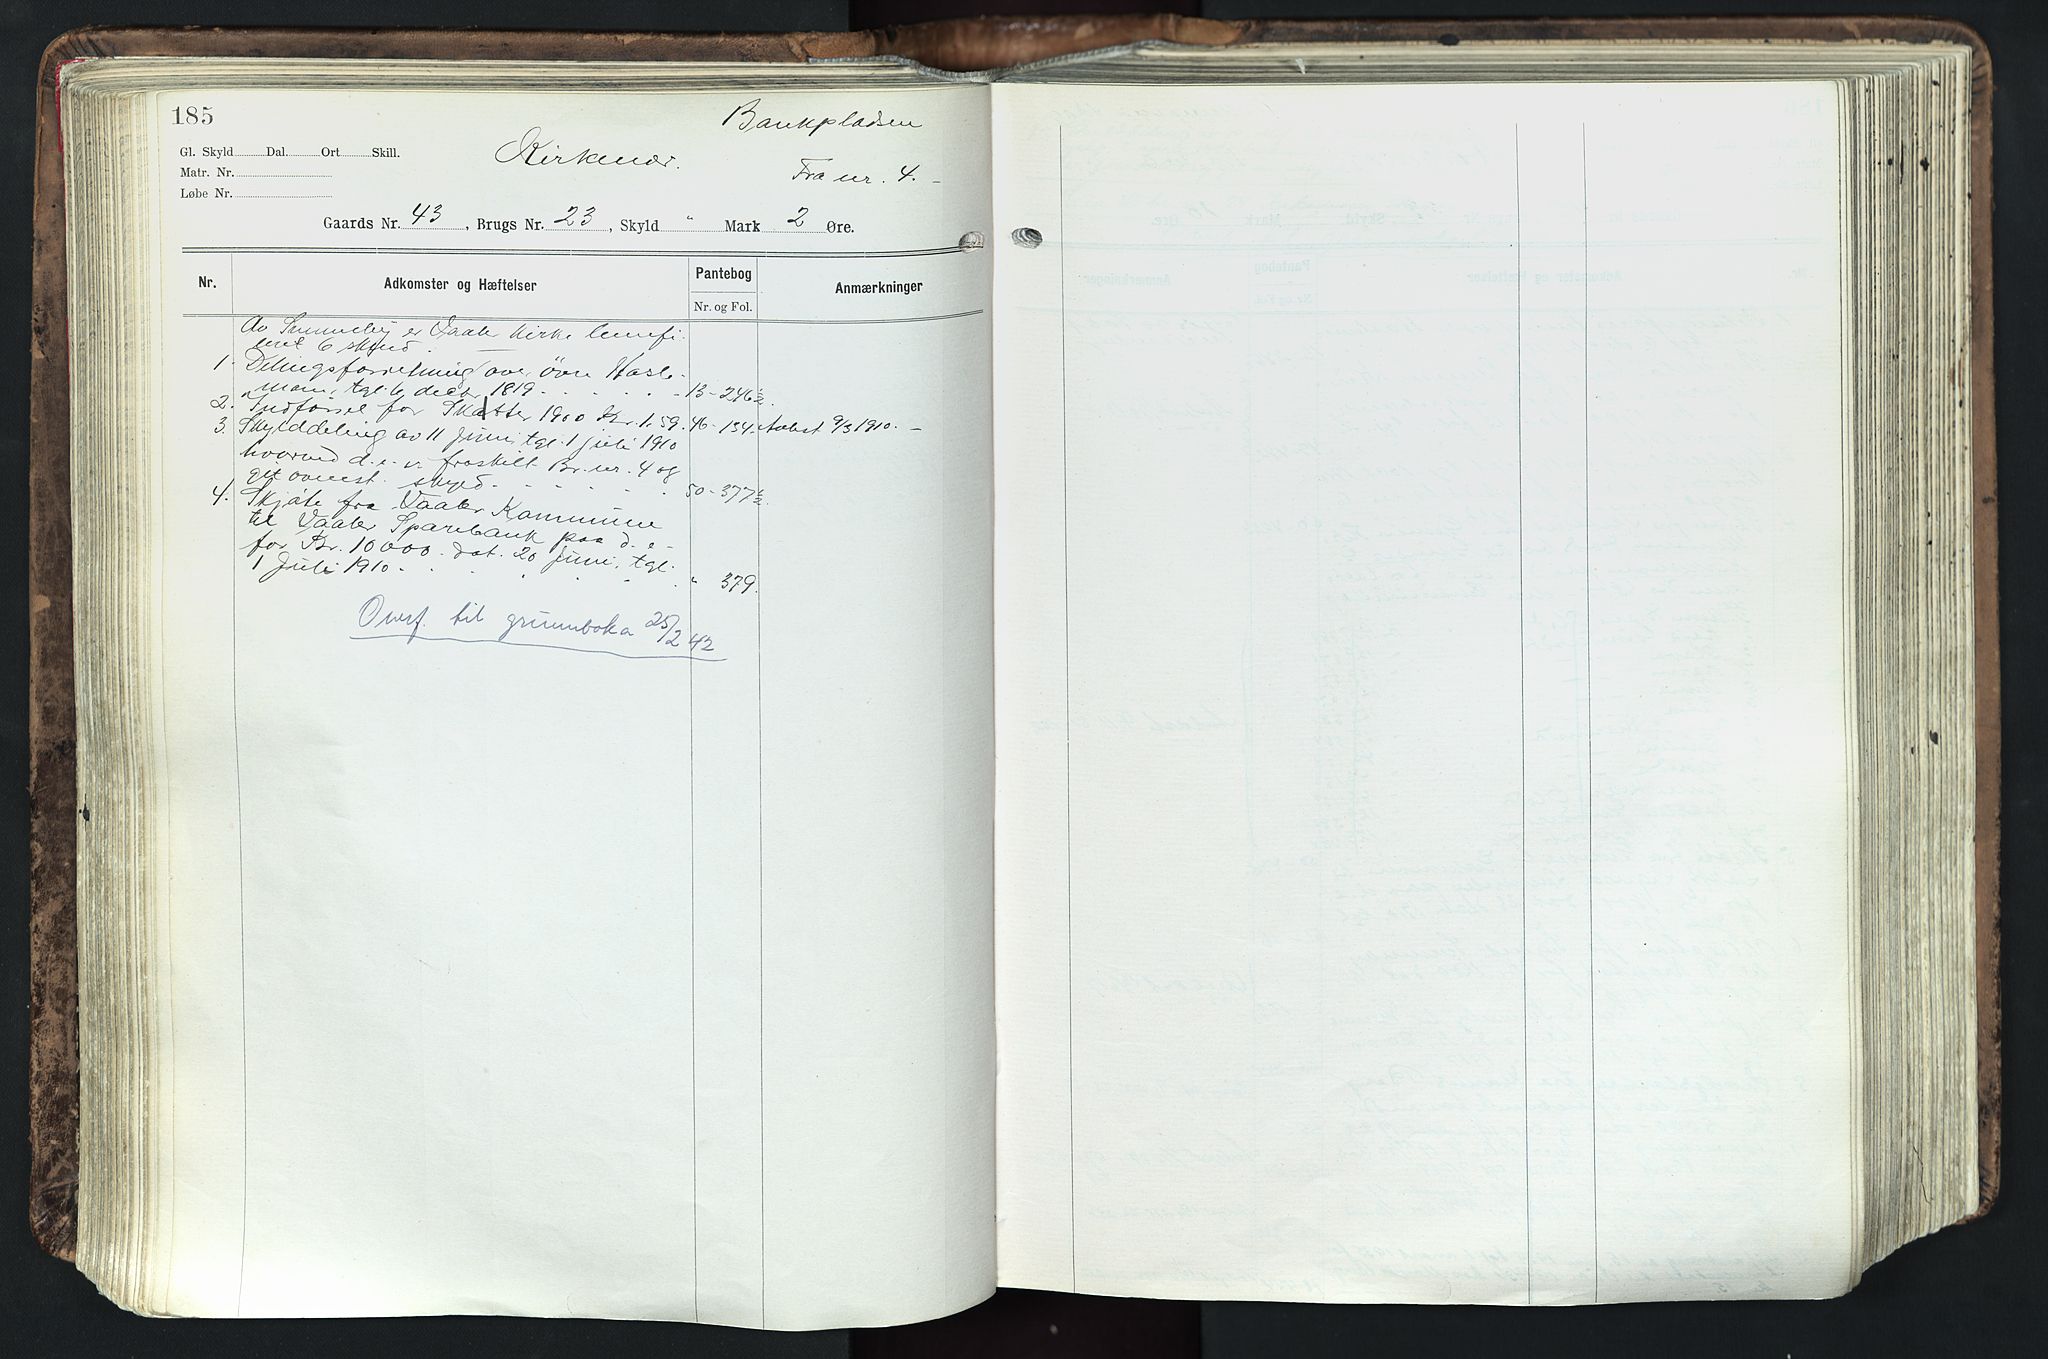 185
Bankpladsen
Gl. Skyld Dal. Ort Skill.
Kirkenær.
Matr. Nr.
Fra nr. 4.
Løbe Nr.
Gaards Nr. 43, Brugs Nr. 23, Skyld " Mark 2 Øre.
Nr. Adkomster og Hæftelser Pantebog Anmærkninger
Nr. og Fol.
Av er Vaaler Kirke benefi-
ceret 6 skind.
1. Delingsforretning over övre Hasle-
moen, tgl. 6 decbr 1819 13-246½.
2. Indførsel for Skatter 1900 Kr. 1,59. 46-134. Avlyst 9/3 1910. –
3. Skylddeling av 11 Juni, tgl. 1 Juli 1910
hvorved d. e. er fraskilt Br. nr. 4 og
git ovenst. skyld. 50-377½.
4. Skjøte fra Vaaler Kommune
til Vaaler Sparebank paa d. e.
for Kr. 10000. dat. 20 Juni, tgl.
1 Juli 1910. " 379.
Overf. til grunnboka 25/2 42